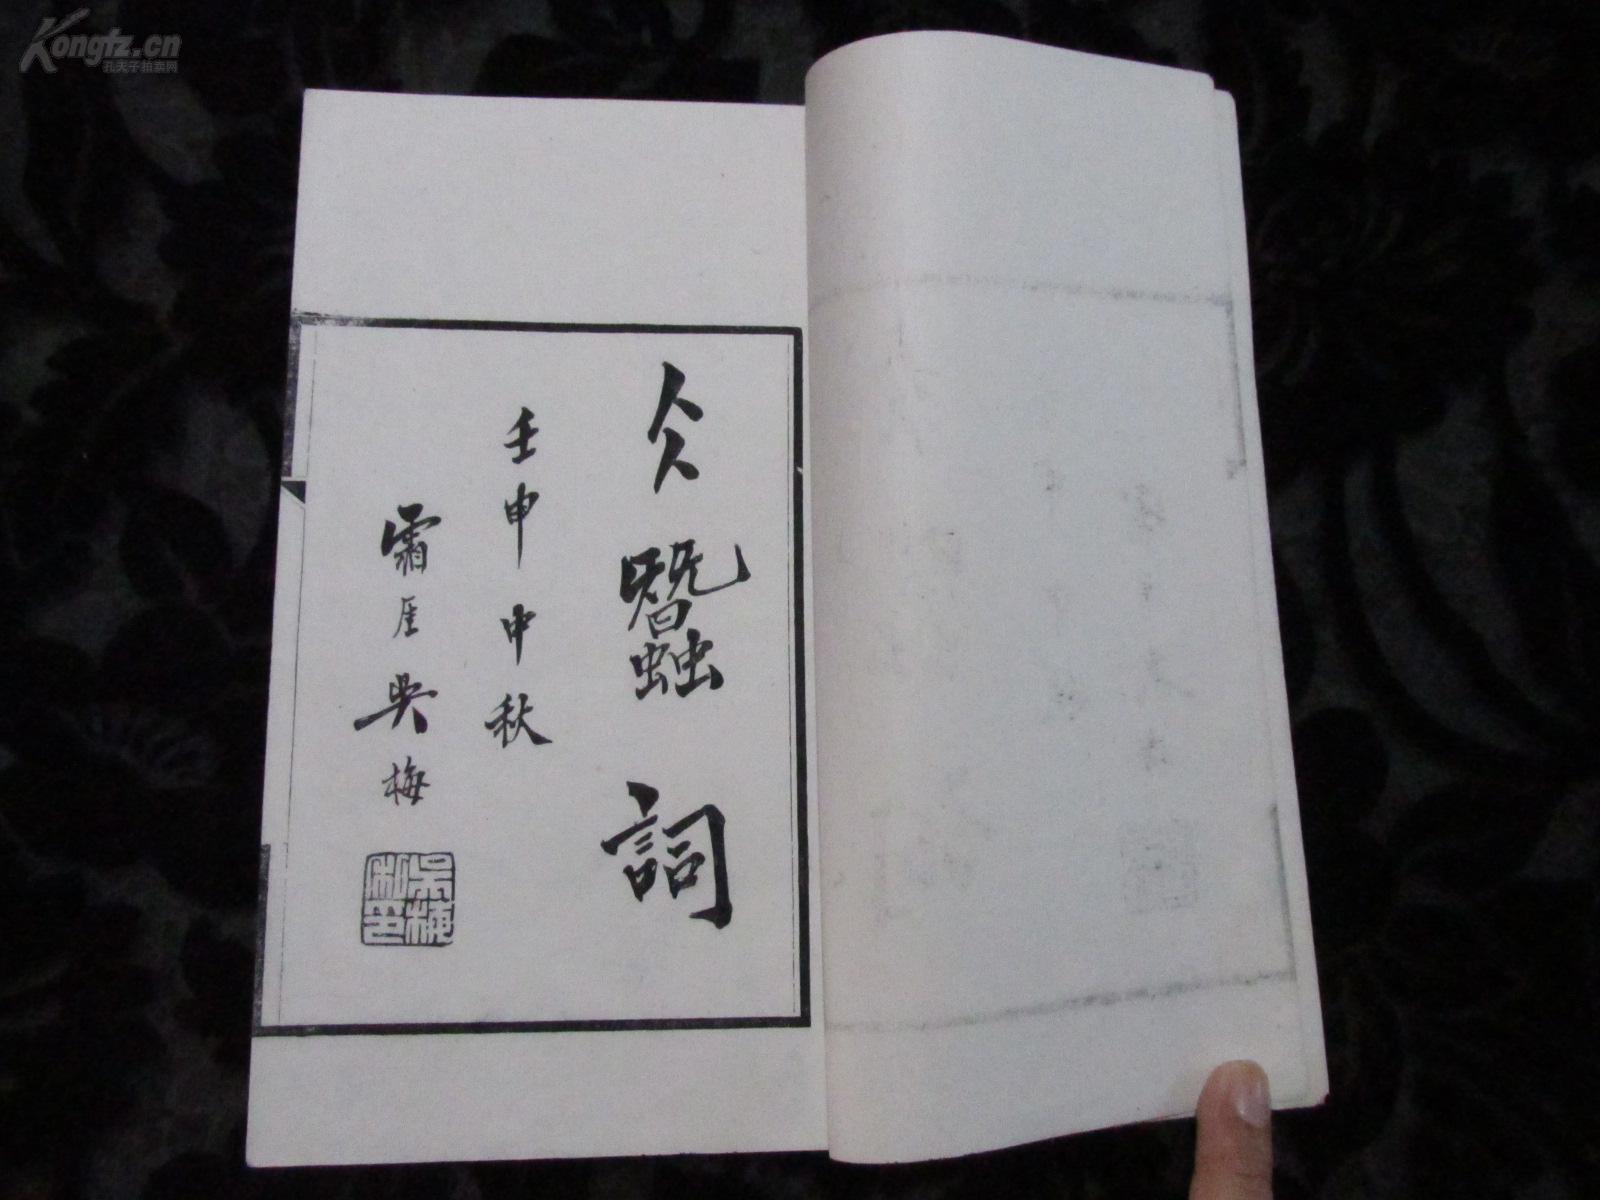 Kongfz.cn
孔夫子拍卖网
仌蠶詞
壬申中秋
霜厓吳梅
吳梅
私印